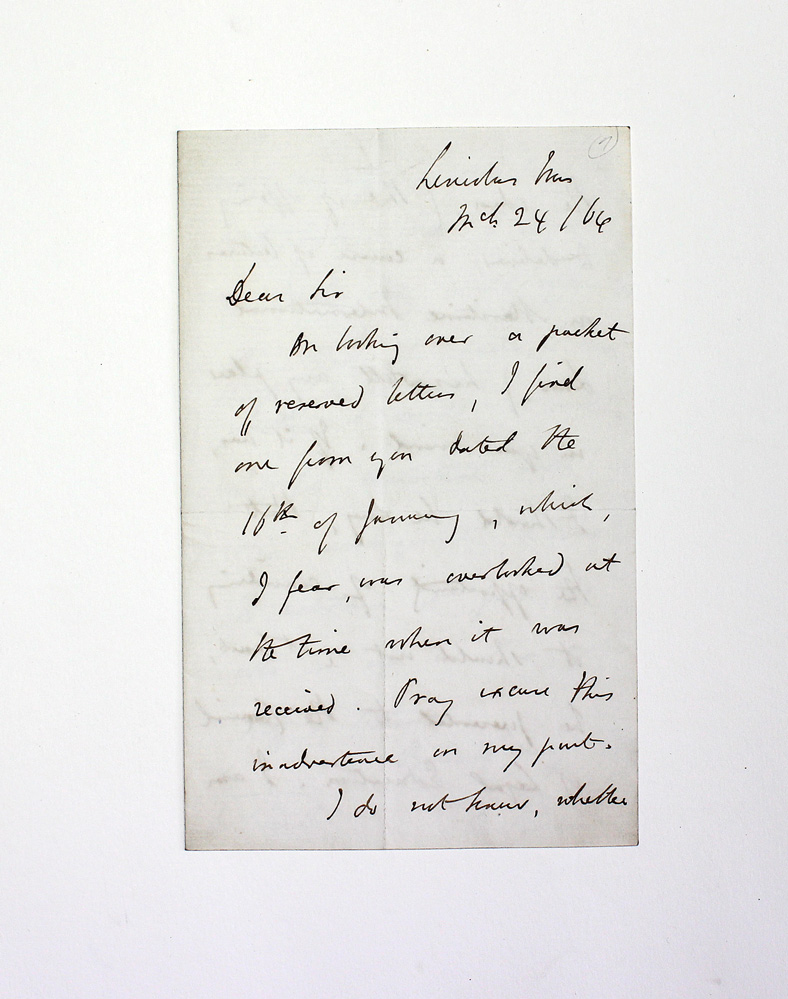 Lincolns Inn
Mch 24 / 64
Dear Sir
On looking over a packet
of reserved letters, I find
one from you dated the
16th of January, which,
I fear, was overlooked at
the time when it was
received. Pray excuse this
inadvertence on my part.
I do not know, whether